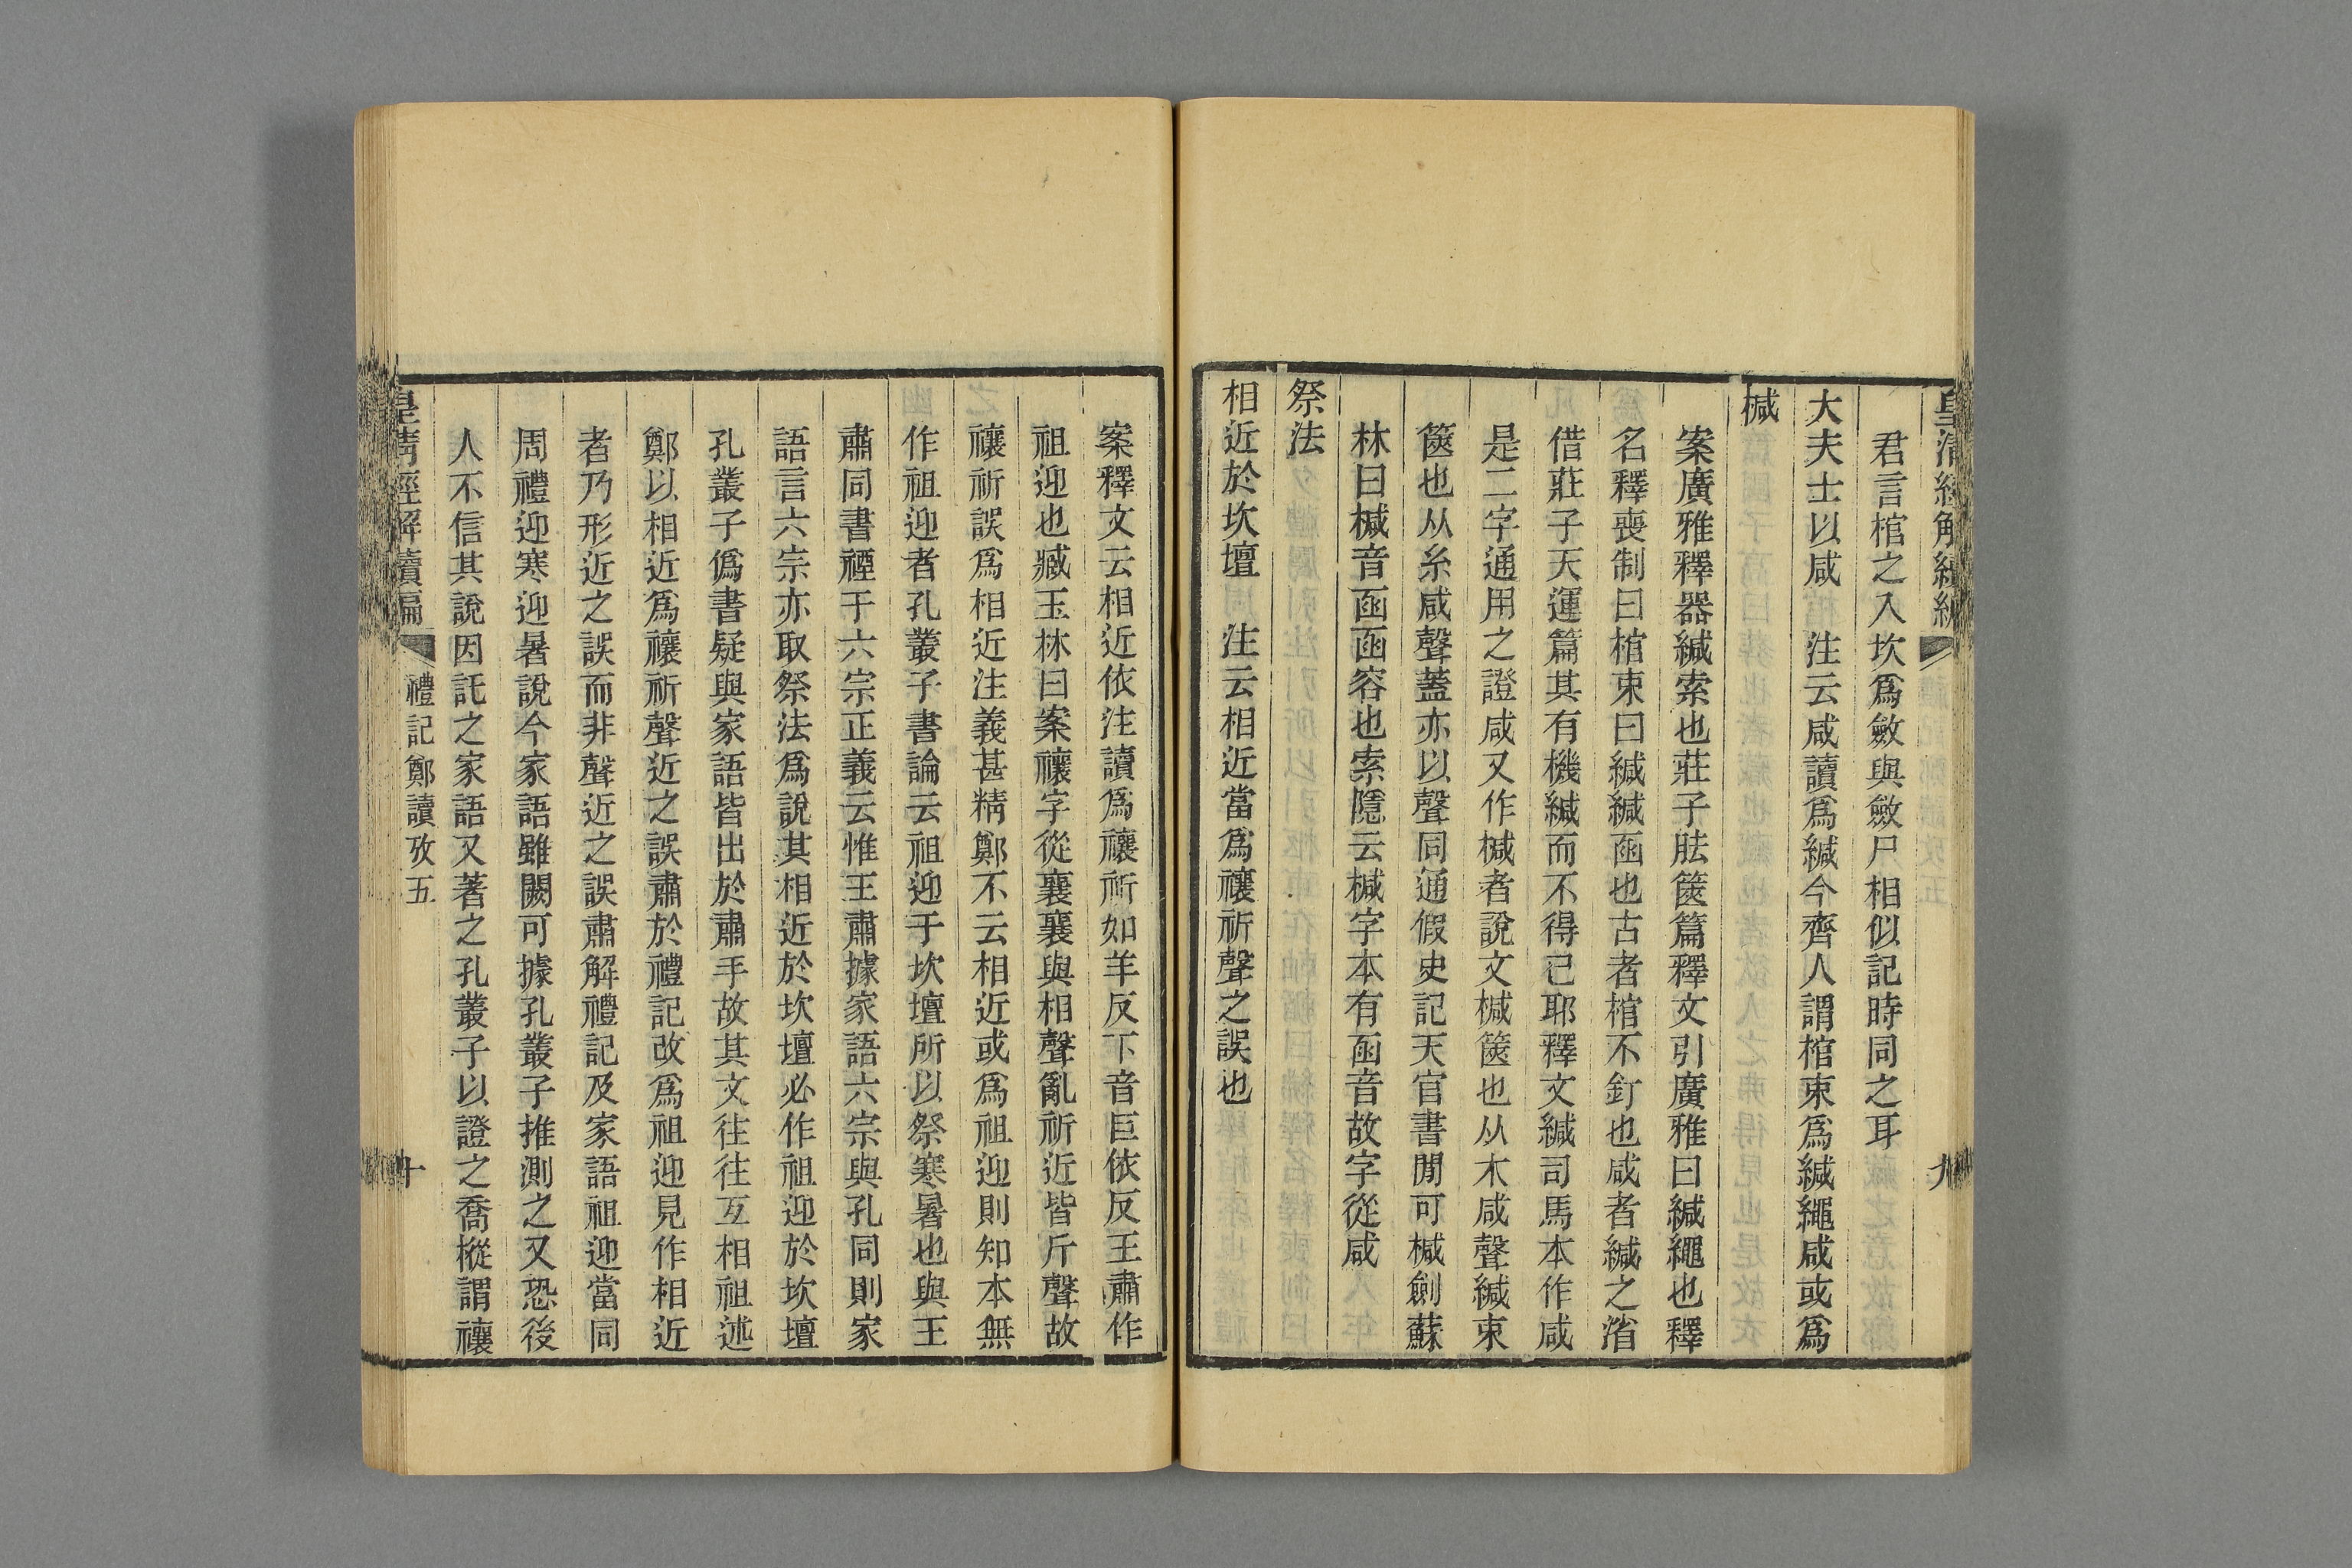 皇清經解續編
九
君言棺之入坎爲斂與斂尸相似記時同之耳
大夫士以咸　注云咸讀爲緘今齊人謂棺束爲緘繩咸或爲
椷
案廣雅釋器緘索也莊子胠篋篇釋文引廣雅曰緘繩也釋
名釋喪制曰棺束曰緘緘函也古者棺不釘也咸者緘之渻
借莊子天運篇其有機緘而不得已耶釋文緘司馬本作咸
是二字通用之證咸又作椷者說文椷篋也从木咸聲緘束
篋也从糸咸聲蓋亦以聲同通假史記天官書閒可椷劍蘇
林曰椷音函函容也索隱云椷字本有函音故字從咸
祭法
相近於坎壇　注云相近當爲禳祈聲之誤也
案釋文云相近依注讀爲禳祈如羊反下音巨依反王肅作
祖迎也臧玉林曰案禳字從襄襄與相聲亂祈近皆斤聲故
禳祈誤爲相近注義甚精鄭不云相近或爲祖迎則知本無
作祖迎者孔叢子書論云祖迎于坎壇所以祭寒暑也與王
肅同書禋于六宗正義云惟王肅據家語六宗與孔同則家
語言六宗亦取祭法爲說其相近於坎壇必作祖迎於坎壇
孔叢子僞書疑與家語皆出於肅手故其文往往互相祖述
鄭以相近爲禳祈聲近之誤肅於禮記改爲祖迎見作相近
者乃形近之誤而非聲近之誤肅解禮記及家語祖迎當同
周禮迎寒迎暑說今家語雖闕可據孔叢子推測之又恐後
人不信其說因託之家語又著之孔叢子以證之喬樅謂禳
皇清經解續編
禮記鄭讀攷五
十